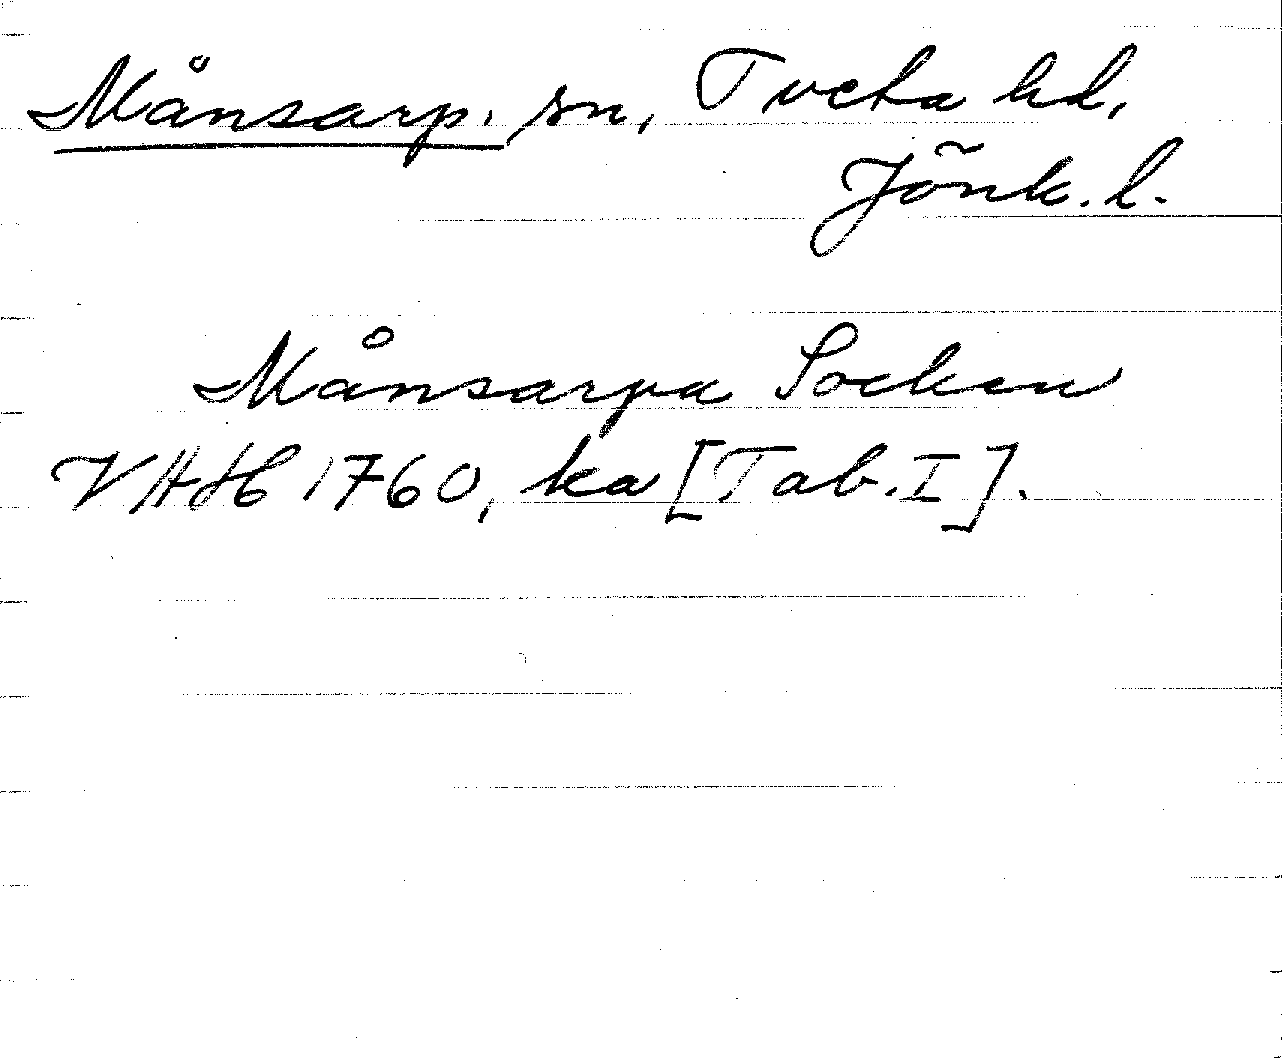 Månsarp. sn, Tveta hd,
Jönk. l.
Månsarpa Socken
VAH 1760, ka [Tab. I].